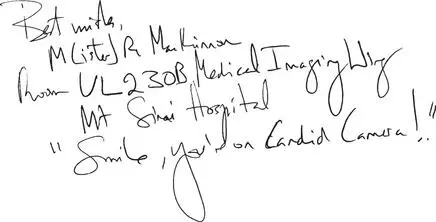 Best wishes,
M(ister) R. MacKinnon
Room UL230B, Medical Imaging Wing
Mt Sinai Hospital
"Smile, you're on Candid Camera!"